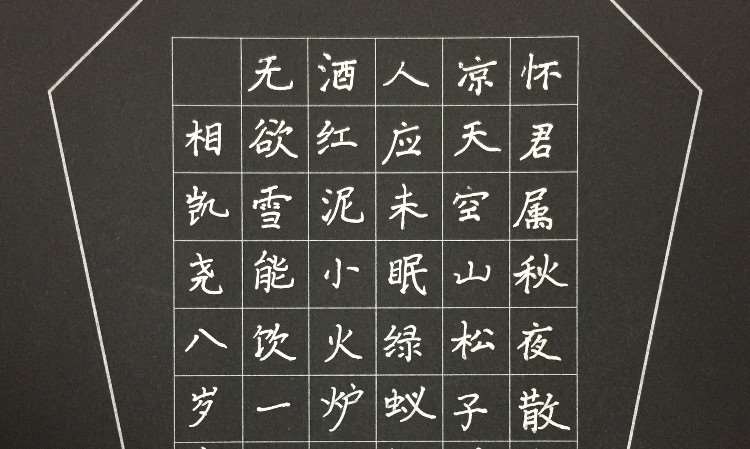 怀君属秋夜散
凉天空山松子
人应未眠绿蚁
酒红泥小火炉
无欲雪能饮一
相凯尧八岁